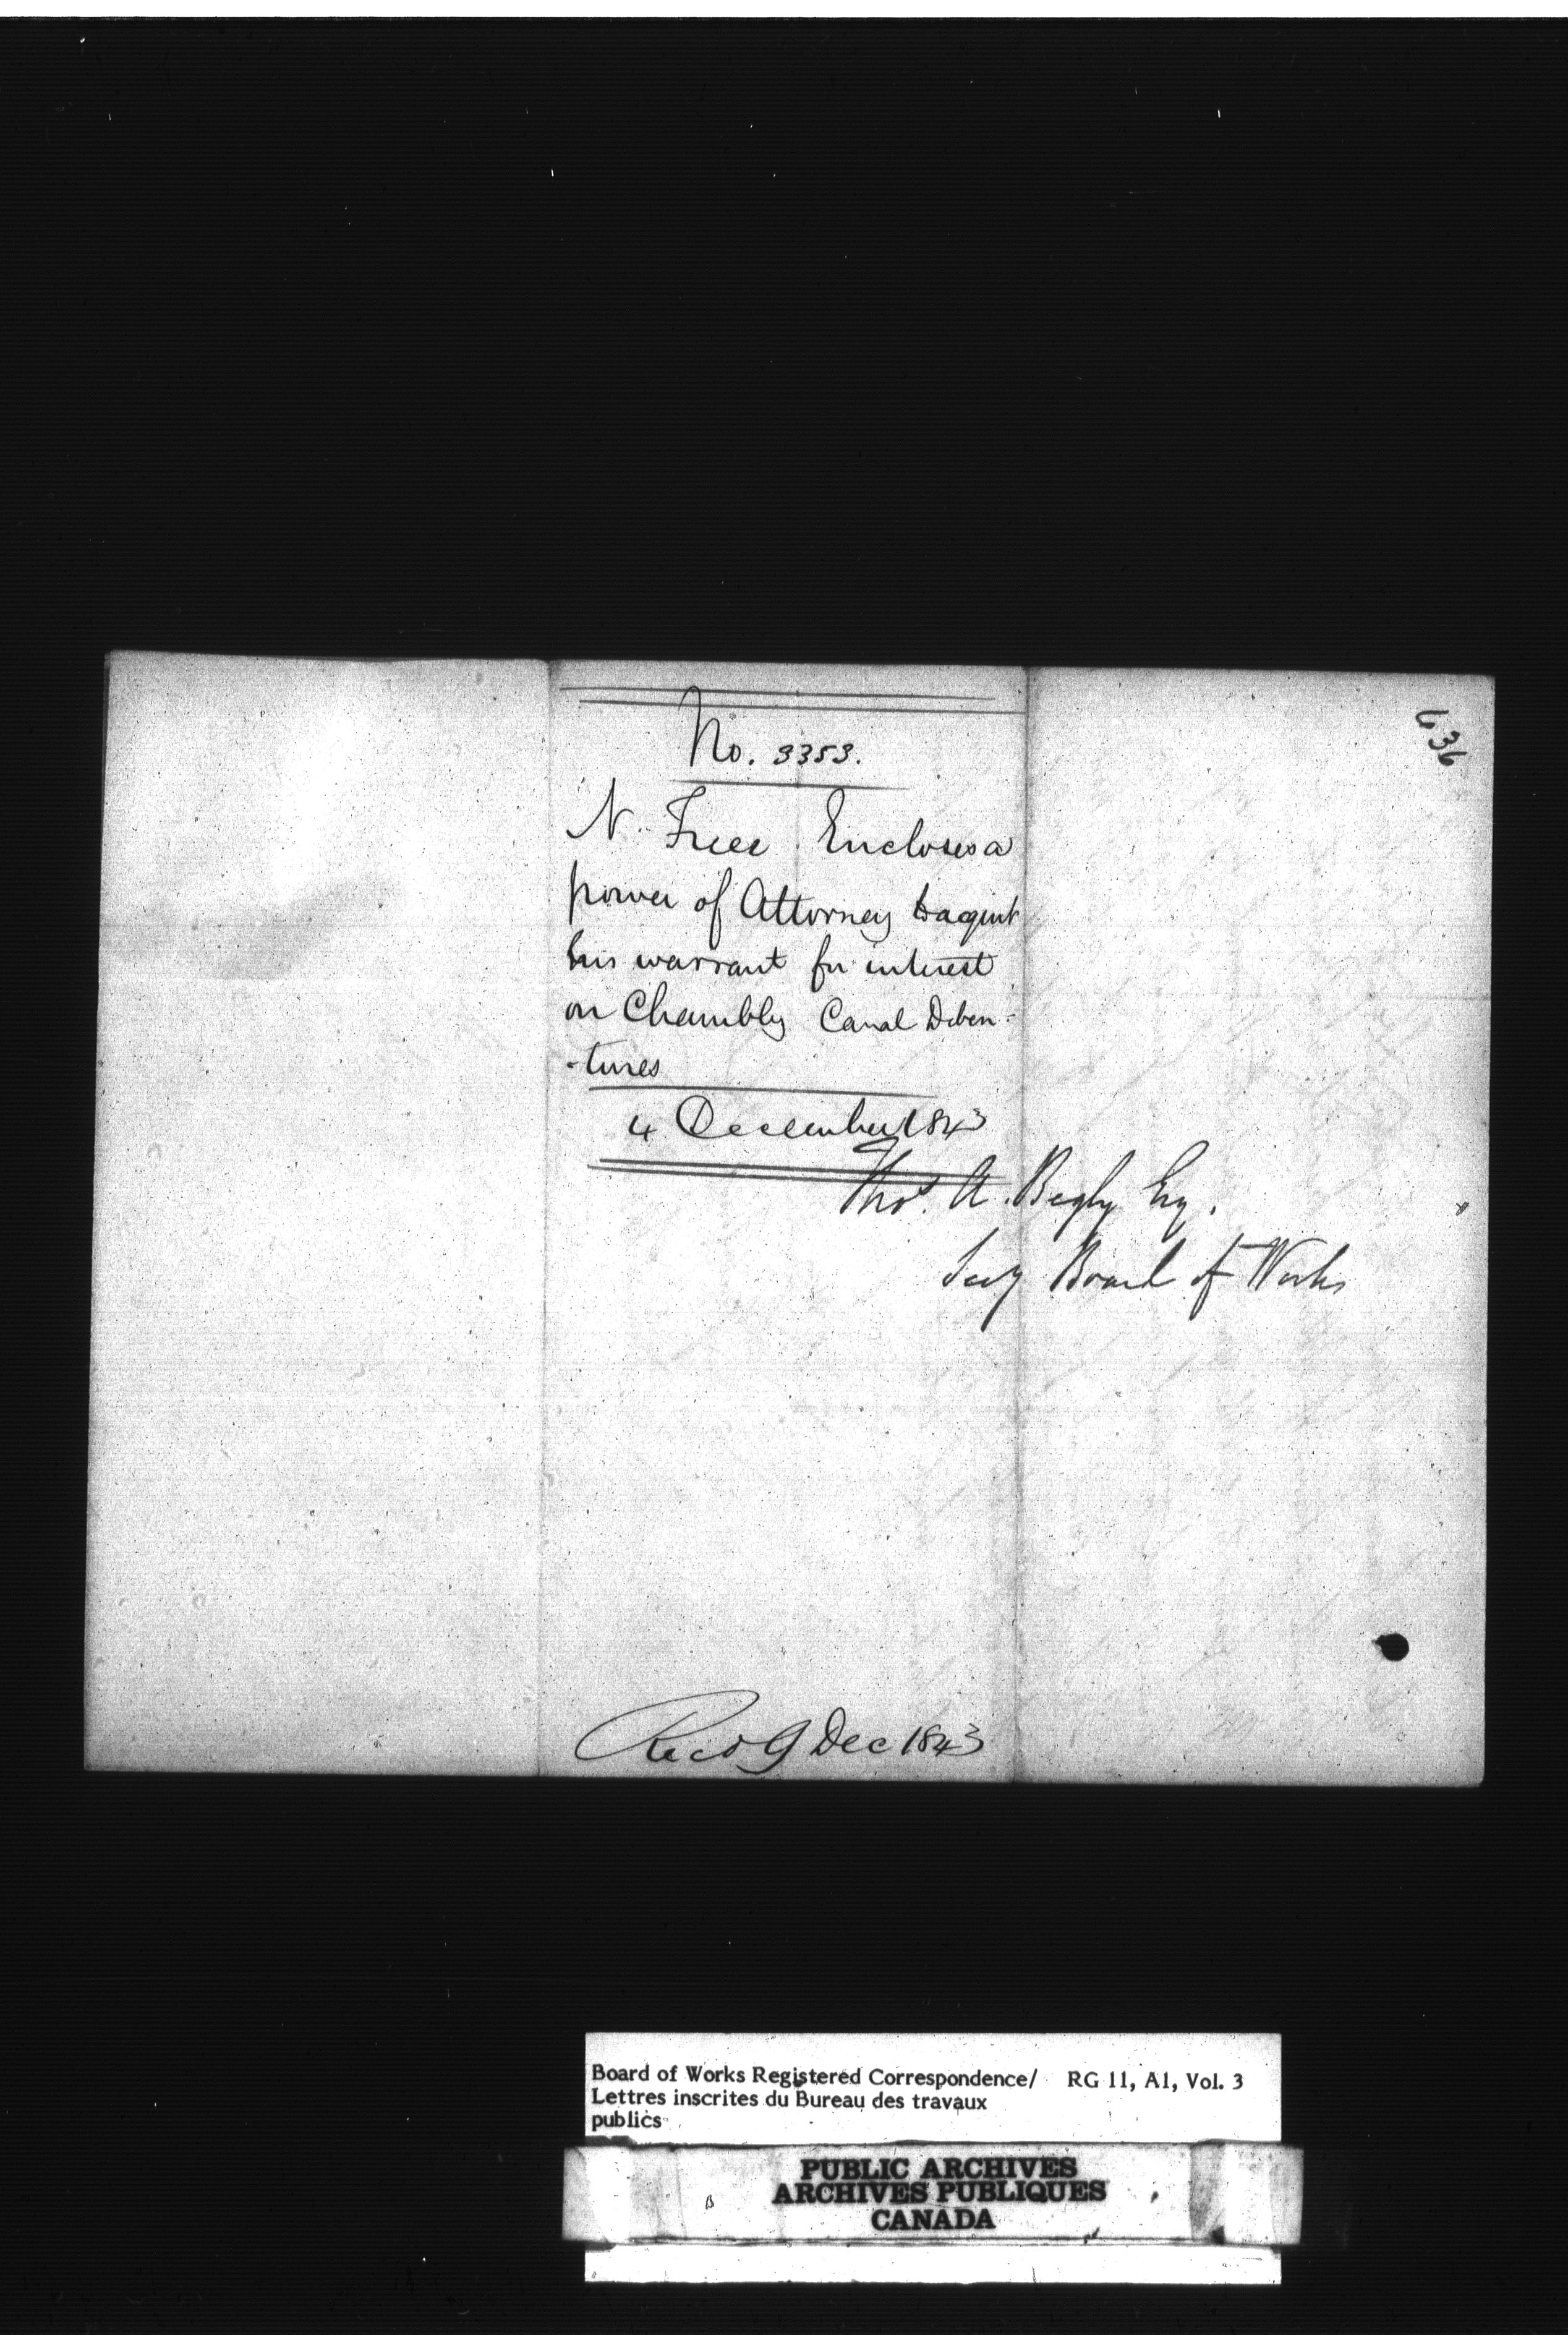 636
No. 3353.
N. Free Encloses a
power of Attorney to acquit
his warrant for interest
on Chambly Canal Deben-
-tures
4 December 1843
Thos. A. Begly Esq.
Secy Board of Works
Recd 9 Dec 1843
Board of Works Registered Correspondence/ RG 11, A1, Vol. 3
Lettres inscrites du Bureau des travaux
publics
PUBLIC ARCHIVES
ARCHIVES PUBLIQUES
CANADA